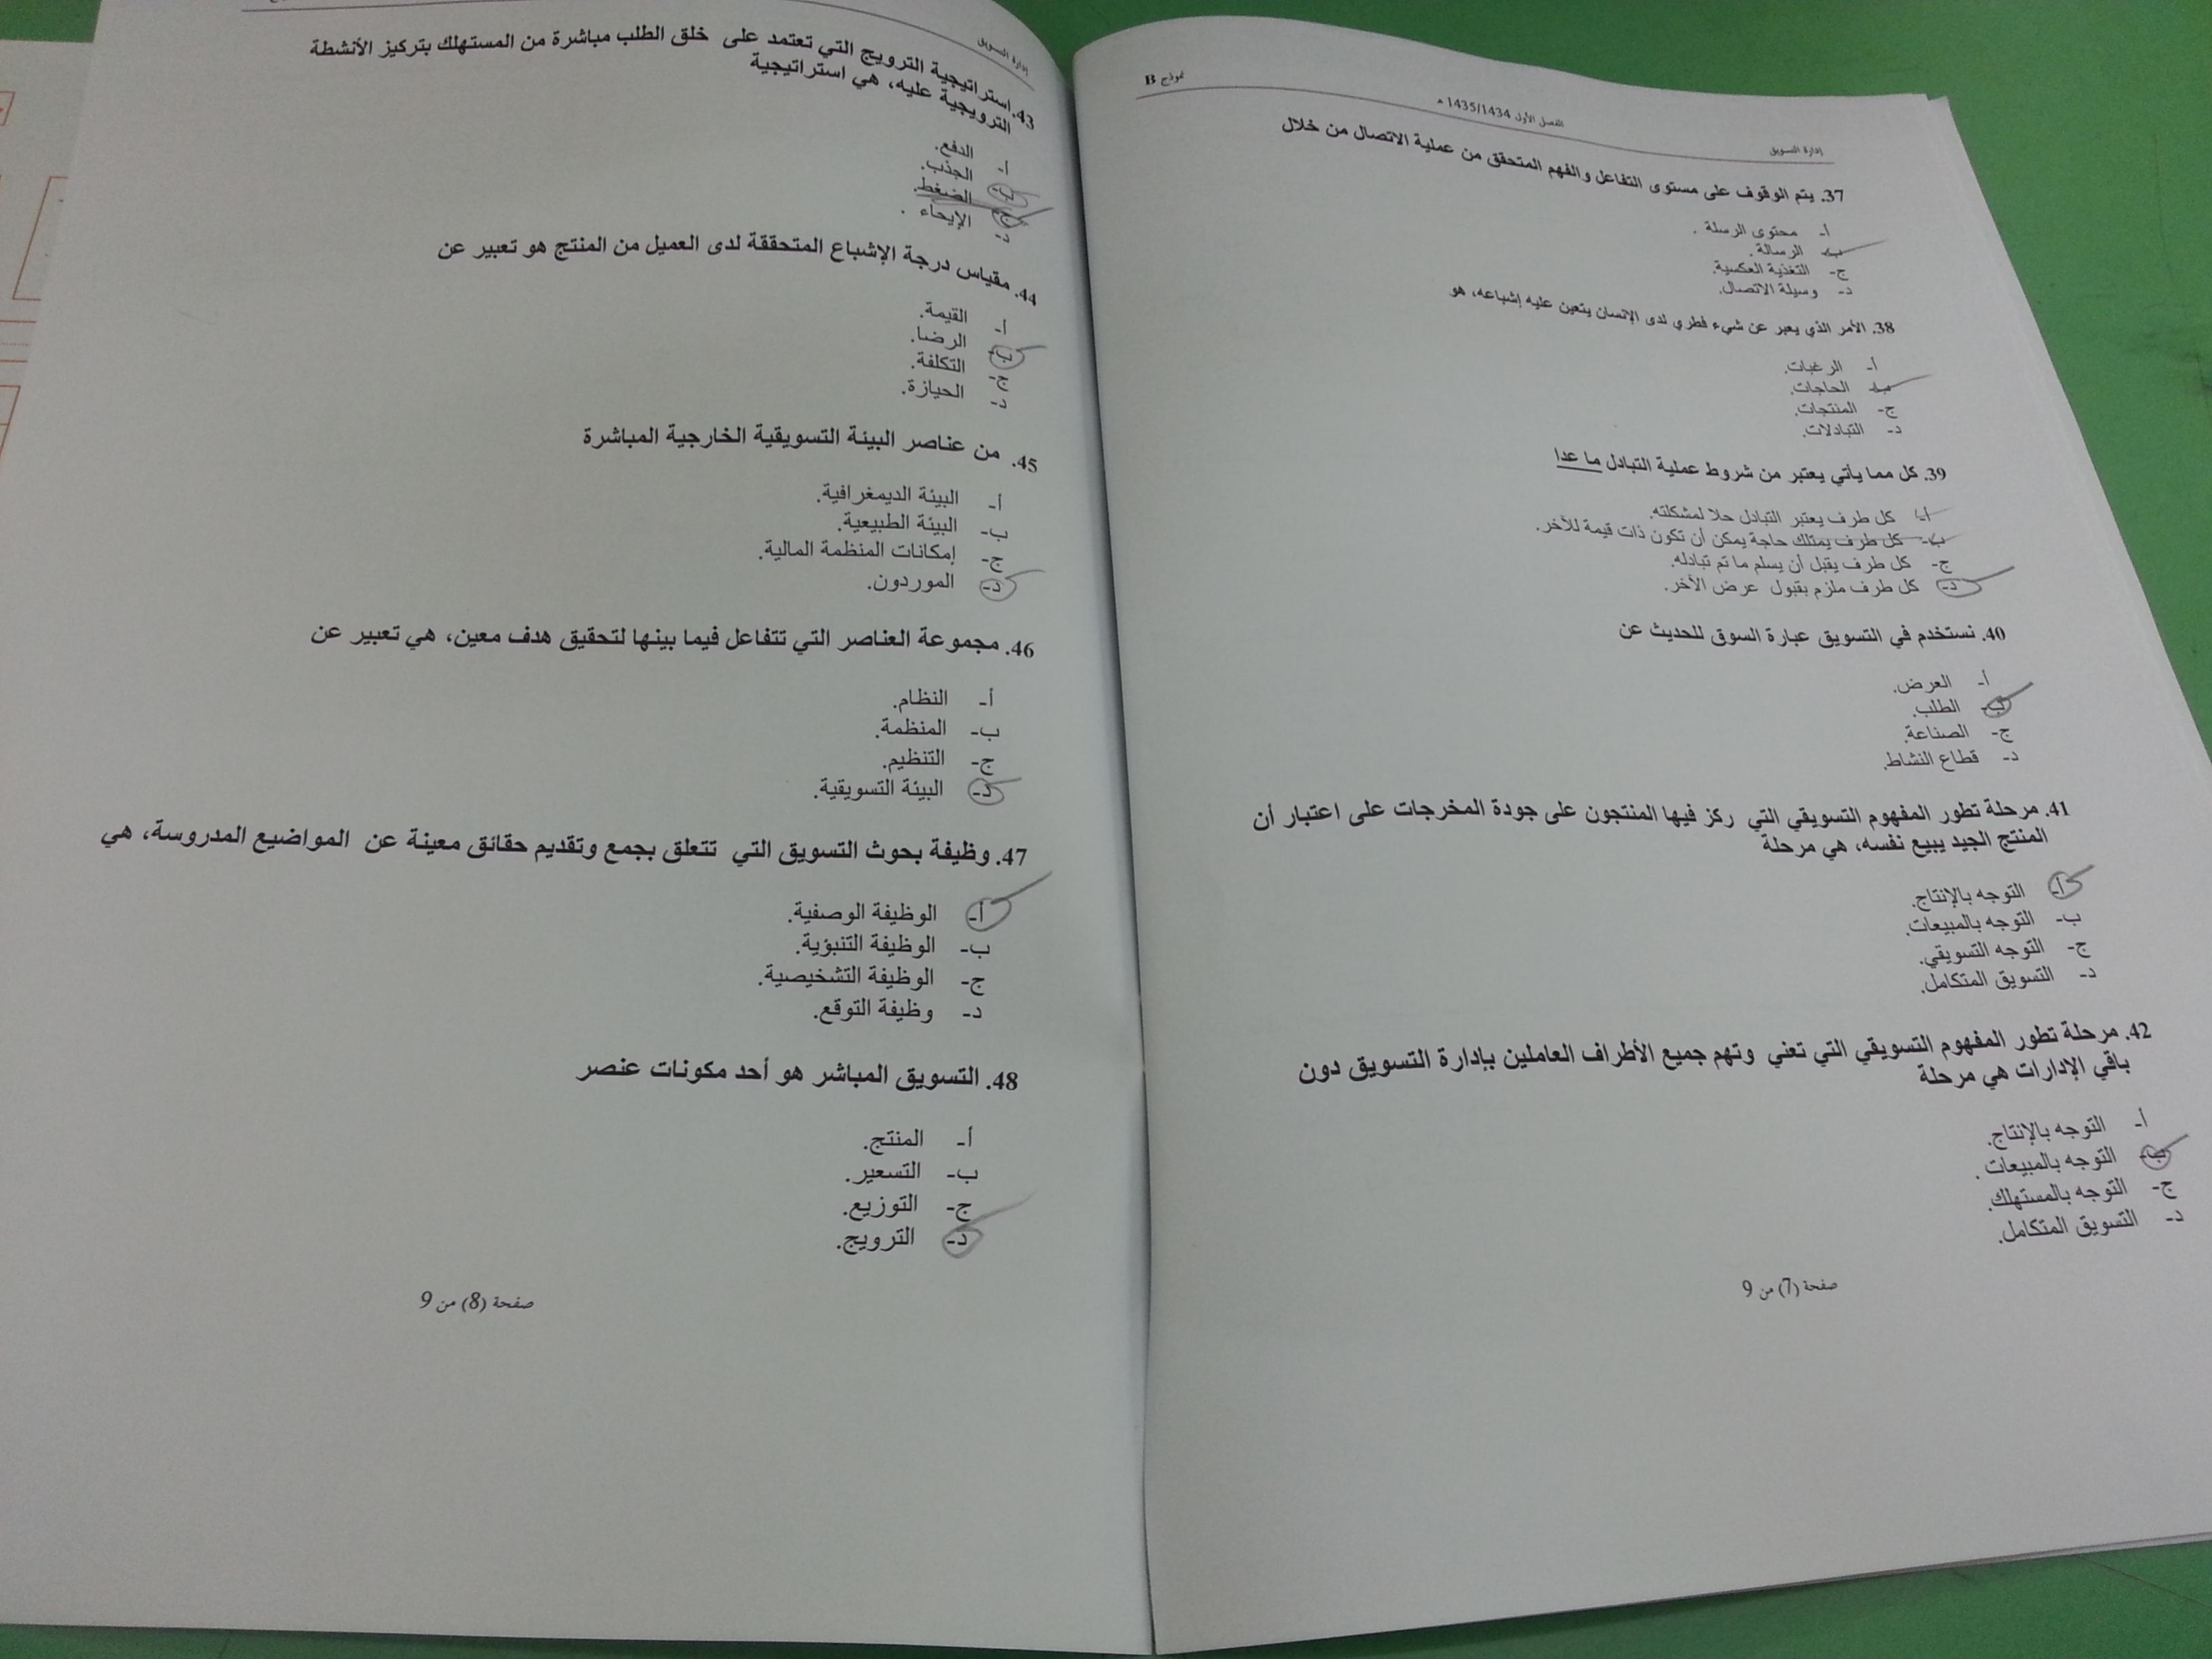 نموذج B
الفصل الأول 1435/1434 هـ
إدارة التسويق
37. يتم الوقوف على مستوى التفاعل والفهم المتحقق من عملية الاتصال من خلال
أ- محتوى الرسلة .
ب- الرسالة .
ج- التغذية العكسية.
د- وسيلة الاتصال.
38. الأمر الذي يعبر عن شيء فطري لدى الإنسان يتعين عليه إشباعه، هو
أ- الرغبات.
ب- الحاجات.
ج- المنتجات.
د- التبادلات.
39. كل مما يأتي يعتبر من شروط عملية التبادل ما عدا
أ- كل طرف يعتبر التبادل حلا لمشكلته.
ب- كل طرف يمتلك حاجة يمكن أن تكون ذات قيمة للآخر.
ج- كل طرف يقبل أن يسلم ما تم تبادله.
د- كل طرف ملزم بقبول عرض الآخر.
40. نستخدم في التسويق عبارة السوق للحديث عن
أ- العرض.
ب- الطلب.
ج- الصناعة.
د- قطاع النشاط.
41. مرحلة تطور المفهوم التسويقي التي ركز فيها المنتجون على جودة المخرجات على اعتبار أن
المنتج الجيد يبيع نفسه، هي مرحلة
أ- التوجه بالإنتاج.
ب- التوجه بالمبيعات.
ج- التوجه التسويقي.
د- التسويق المتكامل.
42. مرحلة تطور المفهوم التسويقي التي تعني وتهم جميع الأطراف العاملين بإدارة التسويق دون
باقي الإدارات هي مرحلة
أ- التوجه بالإنتاج.
ب- التوجه بالمبيعات .
ج- التوجه بالمستهلك.
د- التسويق المتكامل.
صفحة (7) من 9
إدارة التسويق
43. استراتيجية الترويج التي تعتمد على خلق الطلب مباشرة من المستهلك بتركيز الأنشطة
الترويجية عليه، هي استراتيجية
أ- الدفع.
ب- الجذب.
ج- الضغط.
د- الإيحاء .
44. مقياس درجة الإشباع المتحققة لدى العميل من المنتج هو تعبير عن
أ- القيمة.
ب- الرضا.
ج- التكلفة.
د- الحيازة.
45. من عناصر البيئة التسويقية الخارجية المباشرة
أ- البيئة الديمغرافية.
ب- البيئة الطبيعية.
ج- إمكانات المنظمة المالية.
د- الموردون.
46. مجموعة العناصر التي تتفاعل فيما بينها لتحقيق هدف معين، هي تعبير عن
أ- النظام.
ب- المنظمة.
ج- التنظيم.
د- البيئة التسويقية.
47. وظيفة بحوث التسويق التي تتعلق بجمع وتقديم حقائق معينة عن المواضيع المدروسة، هي
أ- الوظيفة الوصفية.
ب- الوظيفة التنبؤية.
ج- الوظيفة التشخيصية.
د- وظيفة التوقع.
48. التسويق المباشر هو أحد مكونات عنصر
أ- المنتج.
ب- التسعير.
ج- التوزيع.
د- الترويج.
صفحة (8) من 9